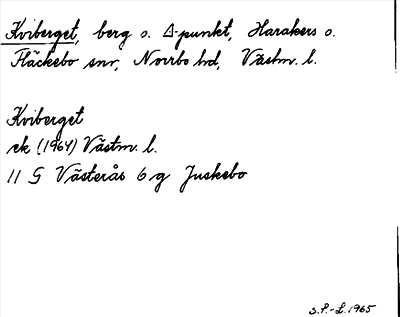 Kviberget, berg o. Δ-punkt, Harakers o.
Fläckebo snr, Norrbo hd, Västm. l.
Kviberget
ek (1964) Västm. l.
11 G Västerås 6 g Juskebo
S.P.-L. 1965